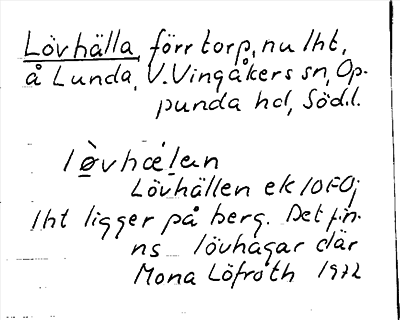 Lövhälla, förr torp, nu lht,
å Lunda, V. Vingåkers sn, Op-
punda hd, Södl.
lø̀vhæ´lan
Lövhällen ek 10F0j
lht ligger på berg. Det fin-
ns lövhagar där
Mona Löfroth 1972